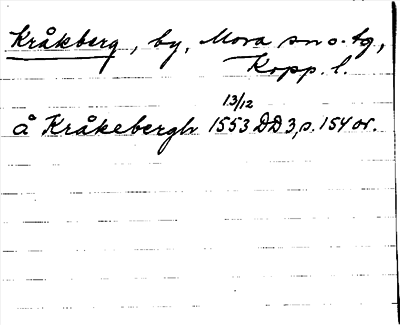 Kråkberg, by, Mora sn o. tg,
Kopp. l.
13/12
å Kråkebergh 1553 DD 3, s. 154 or.